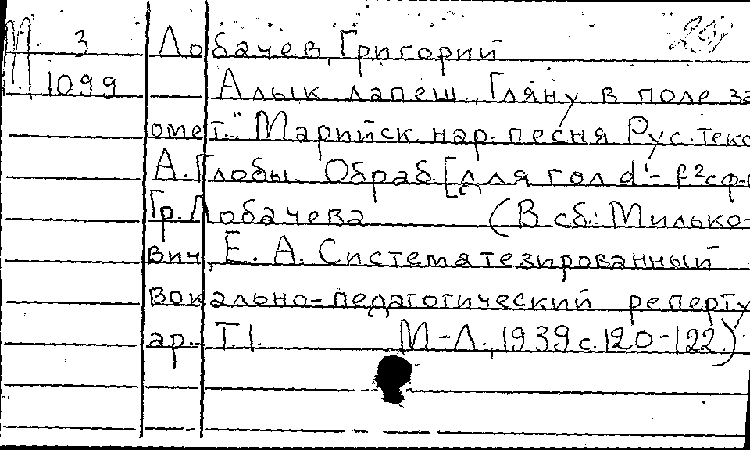 М 3 Лобачев, Григорий
1099 Алык лапеш. "Гляну в поле за
омет." Марийск. нар. песня Рус. текс
А. Глобы. Обраб. [для гол d¹-f² сф-
Гр. Лобачева (В сб.: Милько-
вич, Е. А. Систематезированный
вокально-педагогический реперту
ар. Т I. М-Л., 1939 с. 120-122.)